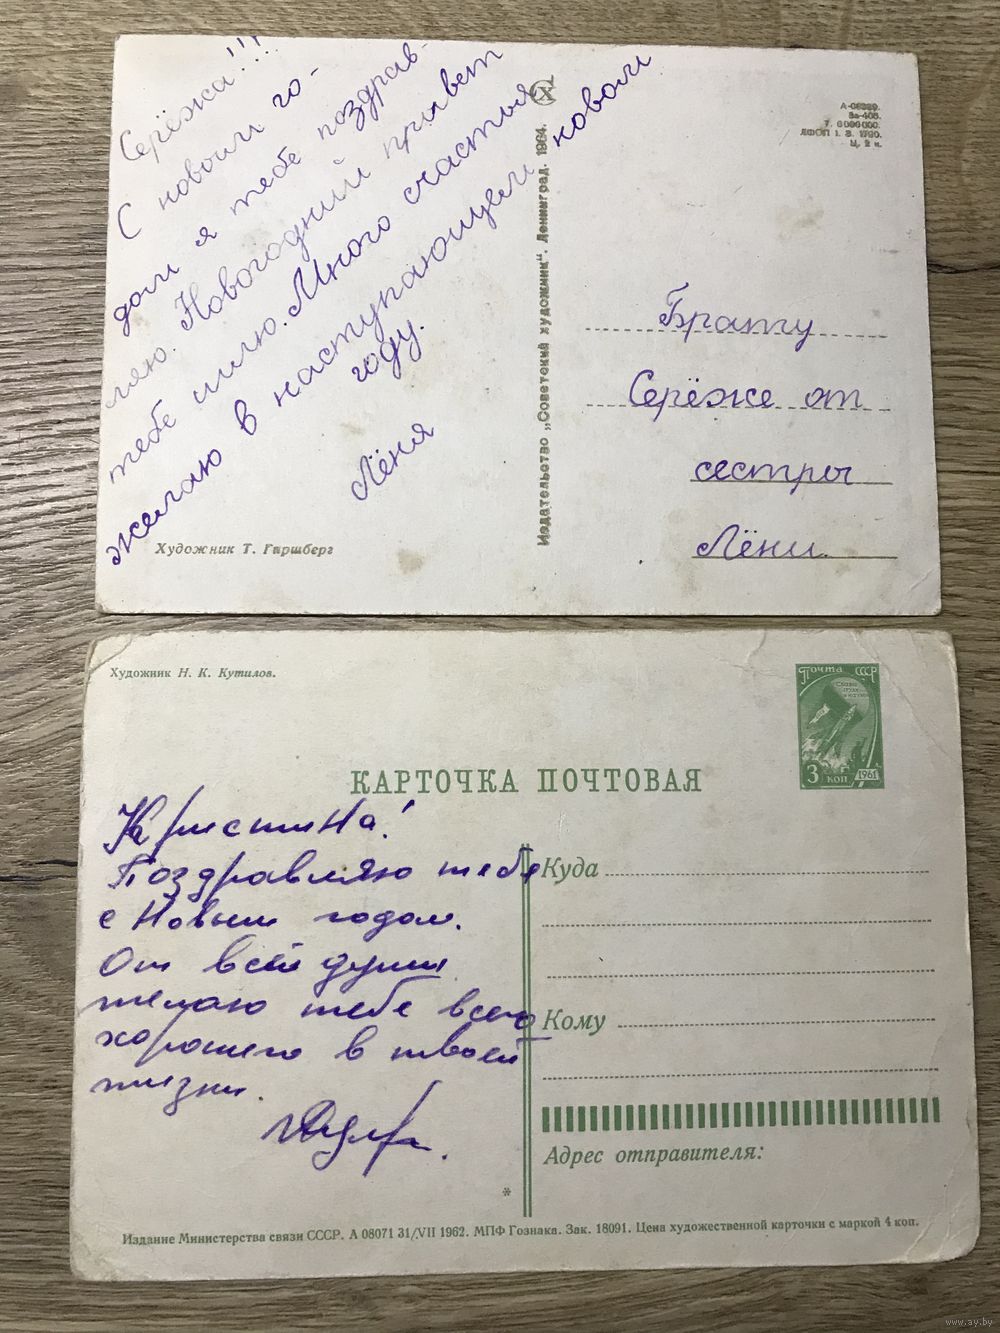 Серёжа!!!
С новым го-
дом я тебе поздрав-
ляю. Новогодний привет
тебе шлю. Много счастья
желаю в наступающем новом
году.
Лёня
Художник Т. Гаршберг
Издательство „Советский художник“. Ленинград. 1964.
А-08389.
За-408.
Т. 6 000 000.
1 З. 1790.
Ц. 2 к.
Брату
Серёже от
сестры
Лёни.
Художник Н. К. Кутилов.
Почта СССР
3 коп
1961
КАРТОЧКА ПОЧТОВАЯ
Кристина!
Поздравляю тебя
с Новым годом.
От всей души
желаю тебе всего
хорошего в твоей
жизни.
Куда
Кому
Адрес отправителя:
*
Издание Министерства связи СССР. А 08071 31/VII 1962. МПФ Гознака. Зак. 18091. Цена художественной карточки с маркой 4 коп.
www.ay.by